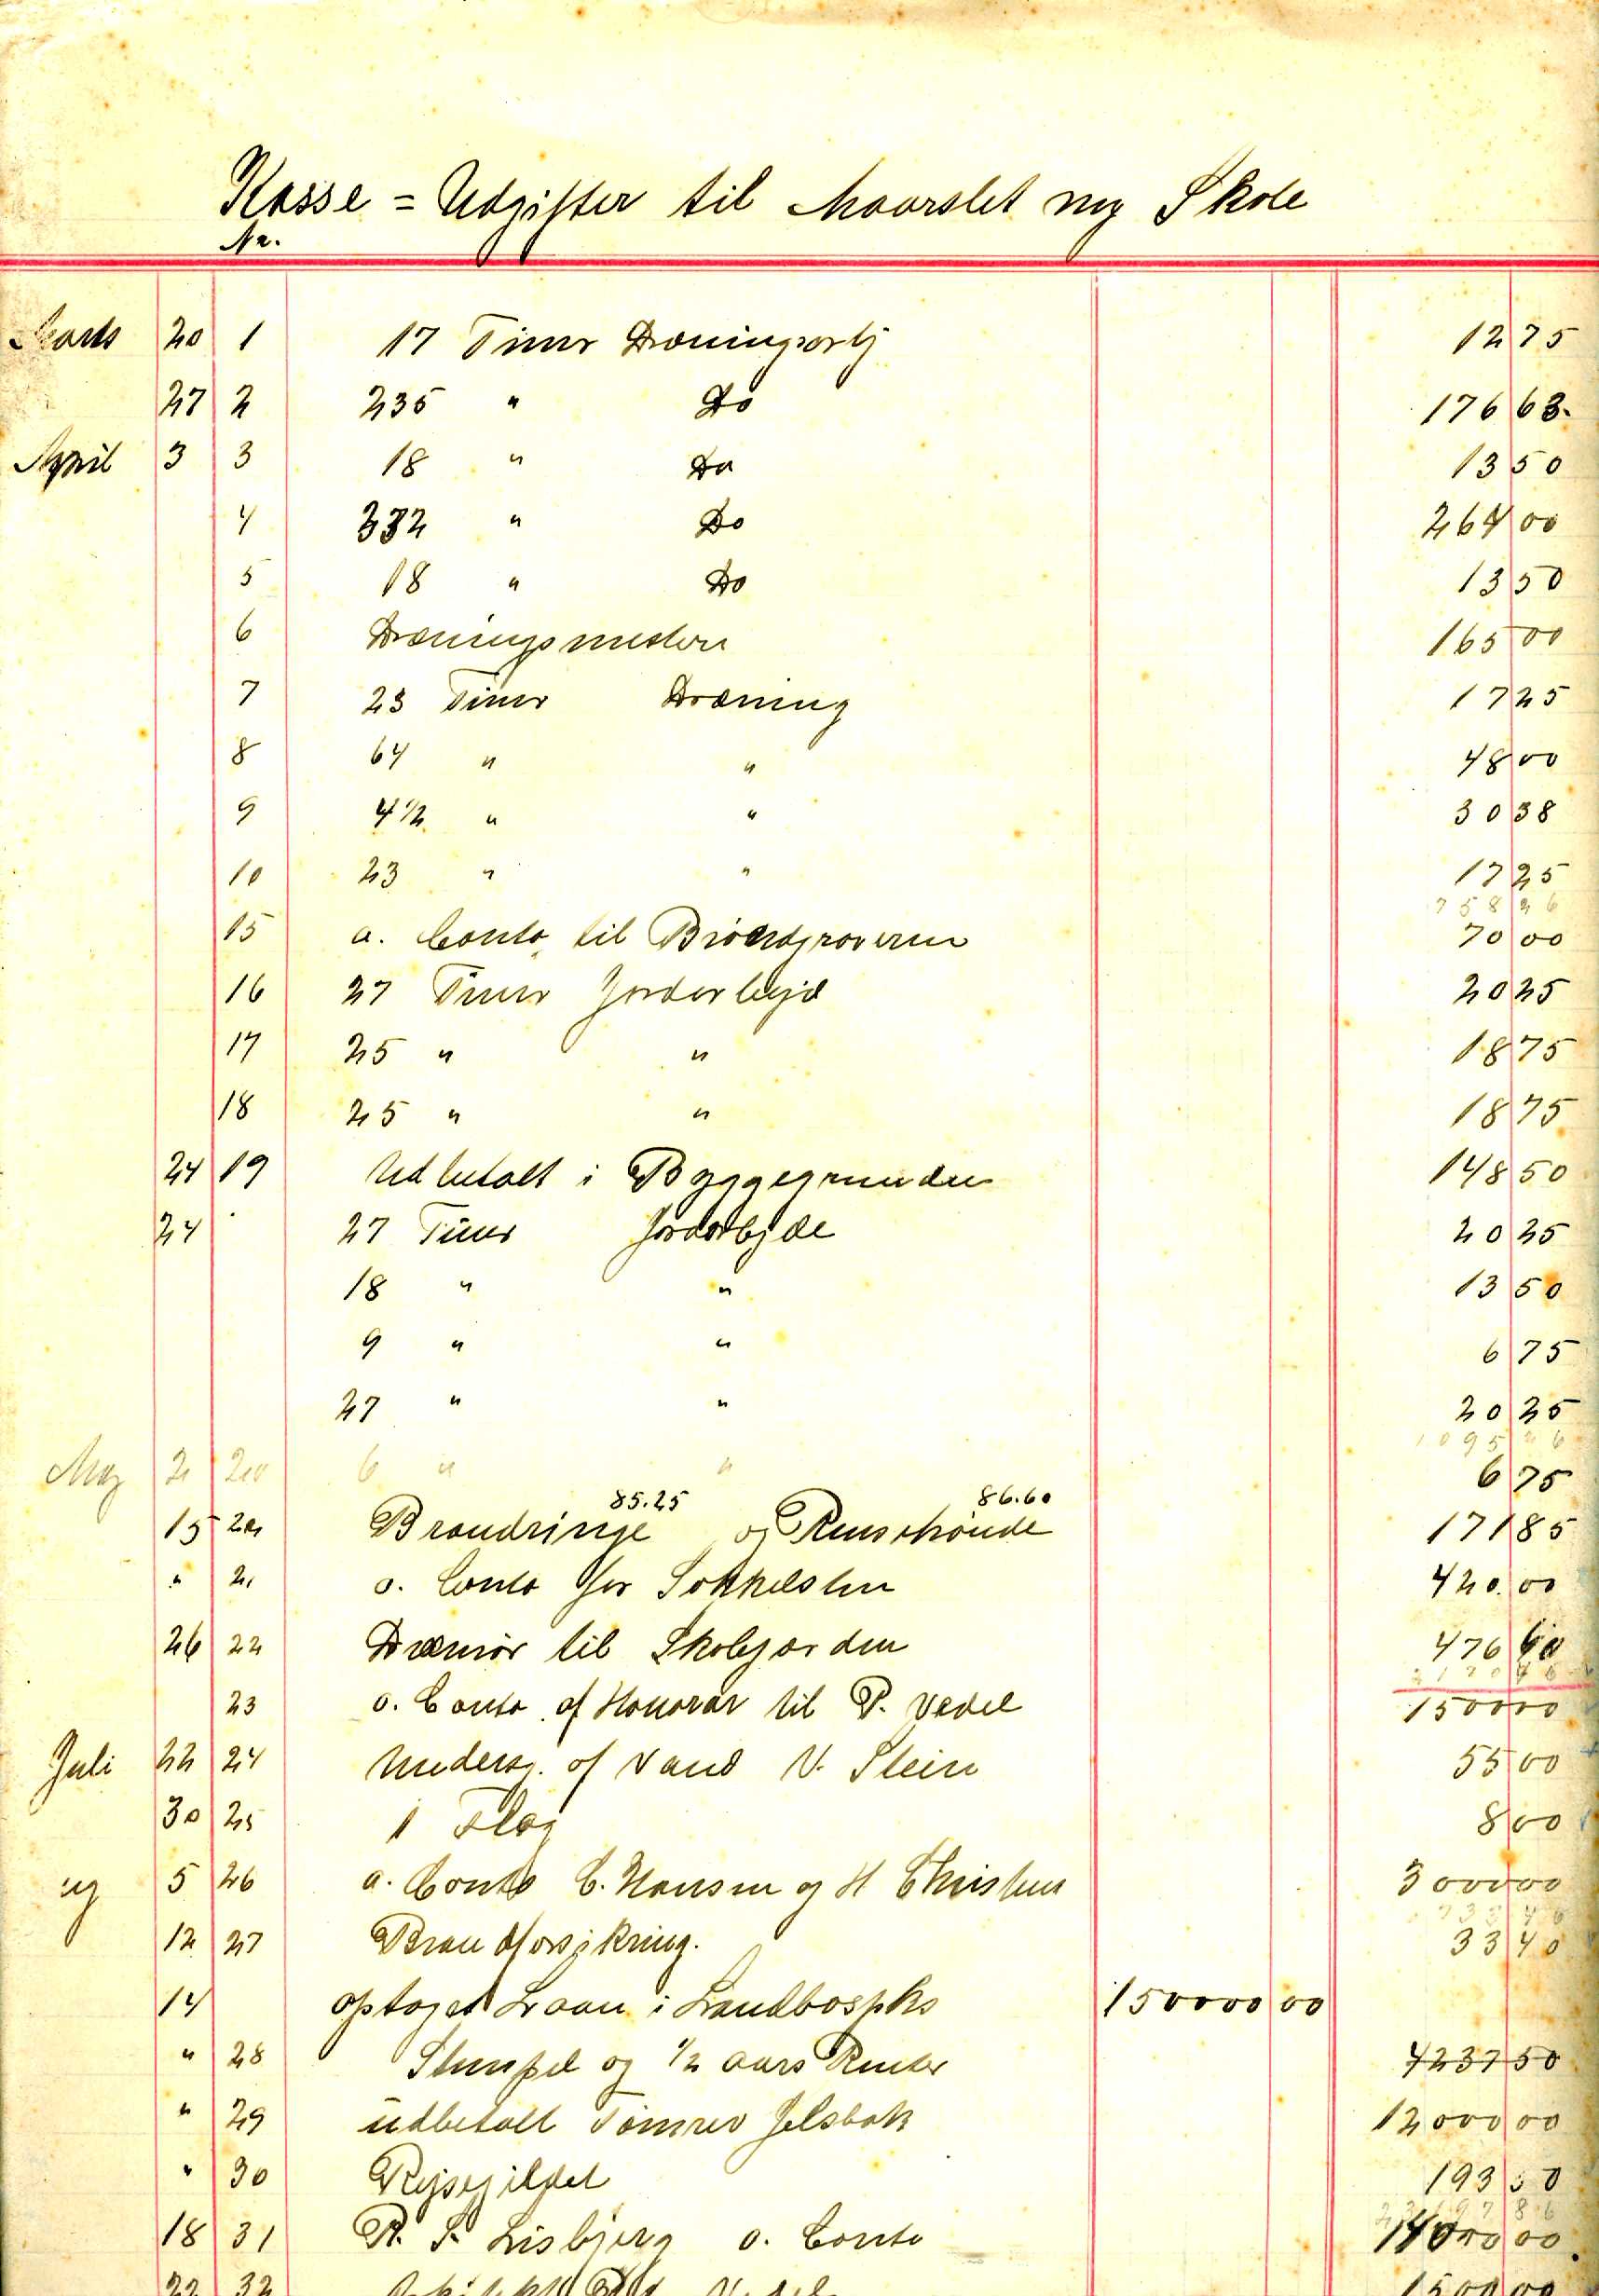 Kasse = Udgifter til Maarslet ny Skole
Nr.
Marts 20 1 17 Timer Dræningsarbj 12 75
27 2 235 " Do 176 63
April 3 3 18 " Do 13 50
4 332 " Do 264 00
5 18 " Do 13 50
6 Dræningsmesteren 165 00
7 23 Timer Dræning 17 25
8 64 " " 48 00
9 4 1/2 " " 30 38
10 23 " " 17 25
758 26
15 a. Conto til Brøndgraveren 70 00
16 27 Timer Jordarbejd 20 25
17 25 " " 18 75
18 25 " " 18 75
24 19 Udbetalt i Byggegrunden 148 50
24 27 Timer Jordarbjde 20 25
18 " " 13 50
9 " " 6 75
27 " " 20 25
1095 26
Maj 2 20 6 " " 6 75
85.25 86.60
15 20 Brøndringe og Rensebrønde 171 85
" 21 a. Conto for Sokkelsten 420.00
26 22 Drænrør til Skolejorden 476 60
23 a. Conto af Honorar til P. Vedel 1500 00
Juli 22 24 Undersg. af Vand V. Stein 55 00
30 25 1 Flag 8 00
ug 5 26 a. Conto C. Hansen og H Christens 3000 00
12 27 Brandforsikring. 33 40
14 optaget Laan i Landbospks 150000 00
" 28 Stempel og 1/2 Aars Renter 4237 50
" 29 udbetalt Tømrer Jelsbak 12000 00
" 30 Rejsegildet 193 50
18 31 R. S. Lisbjerg a. Conto 14000 00
22 32 1500 00